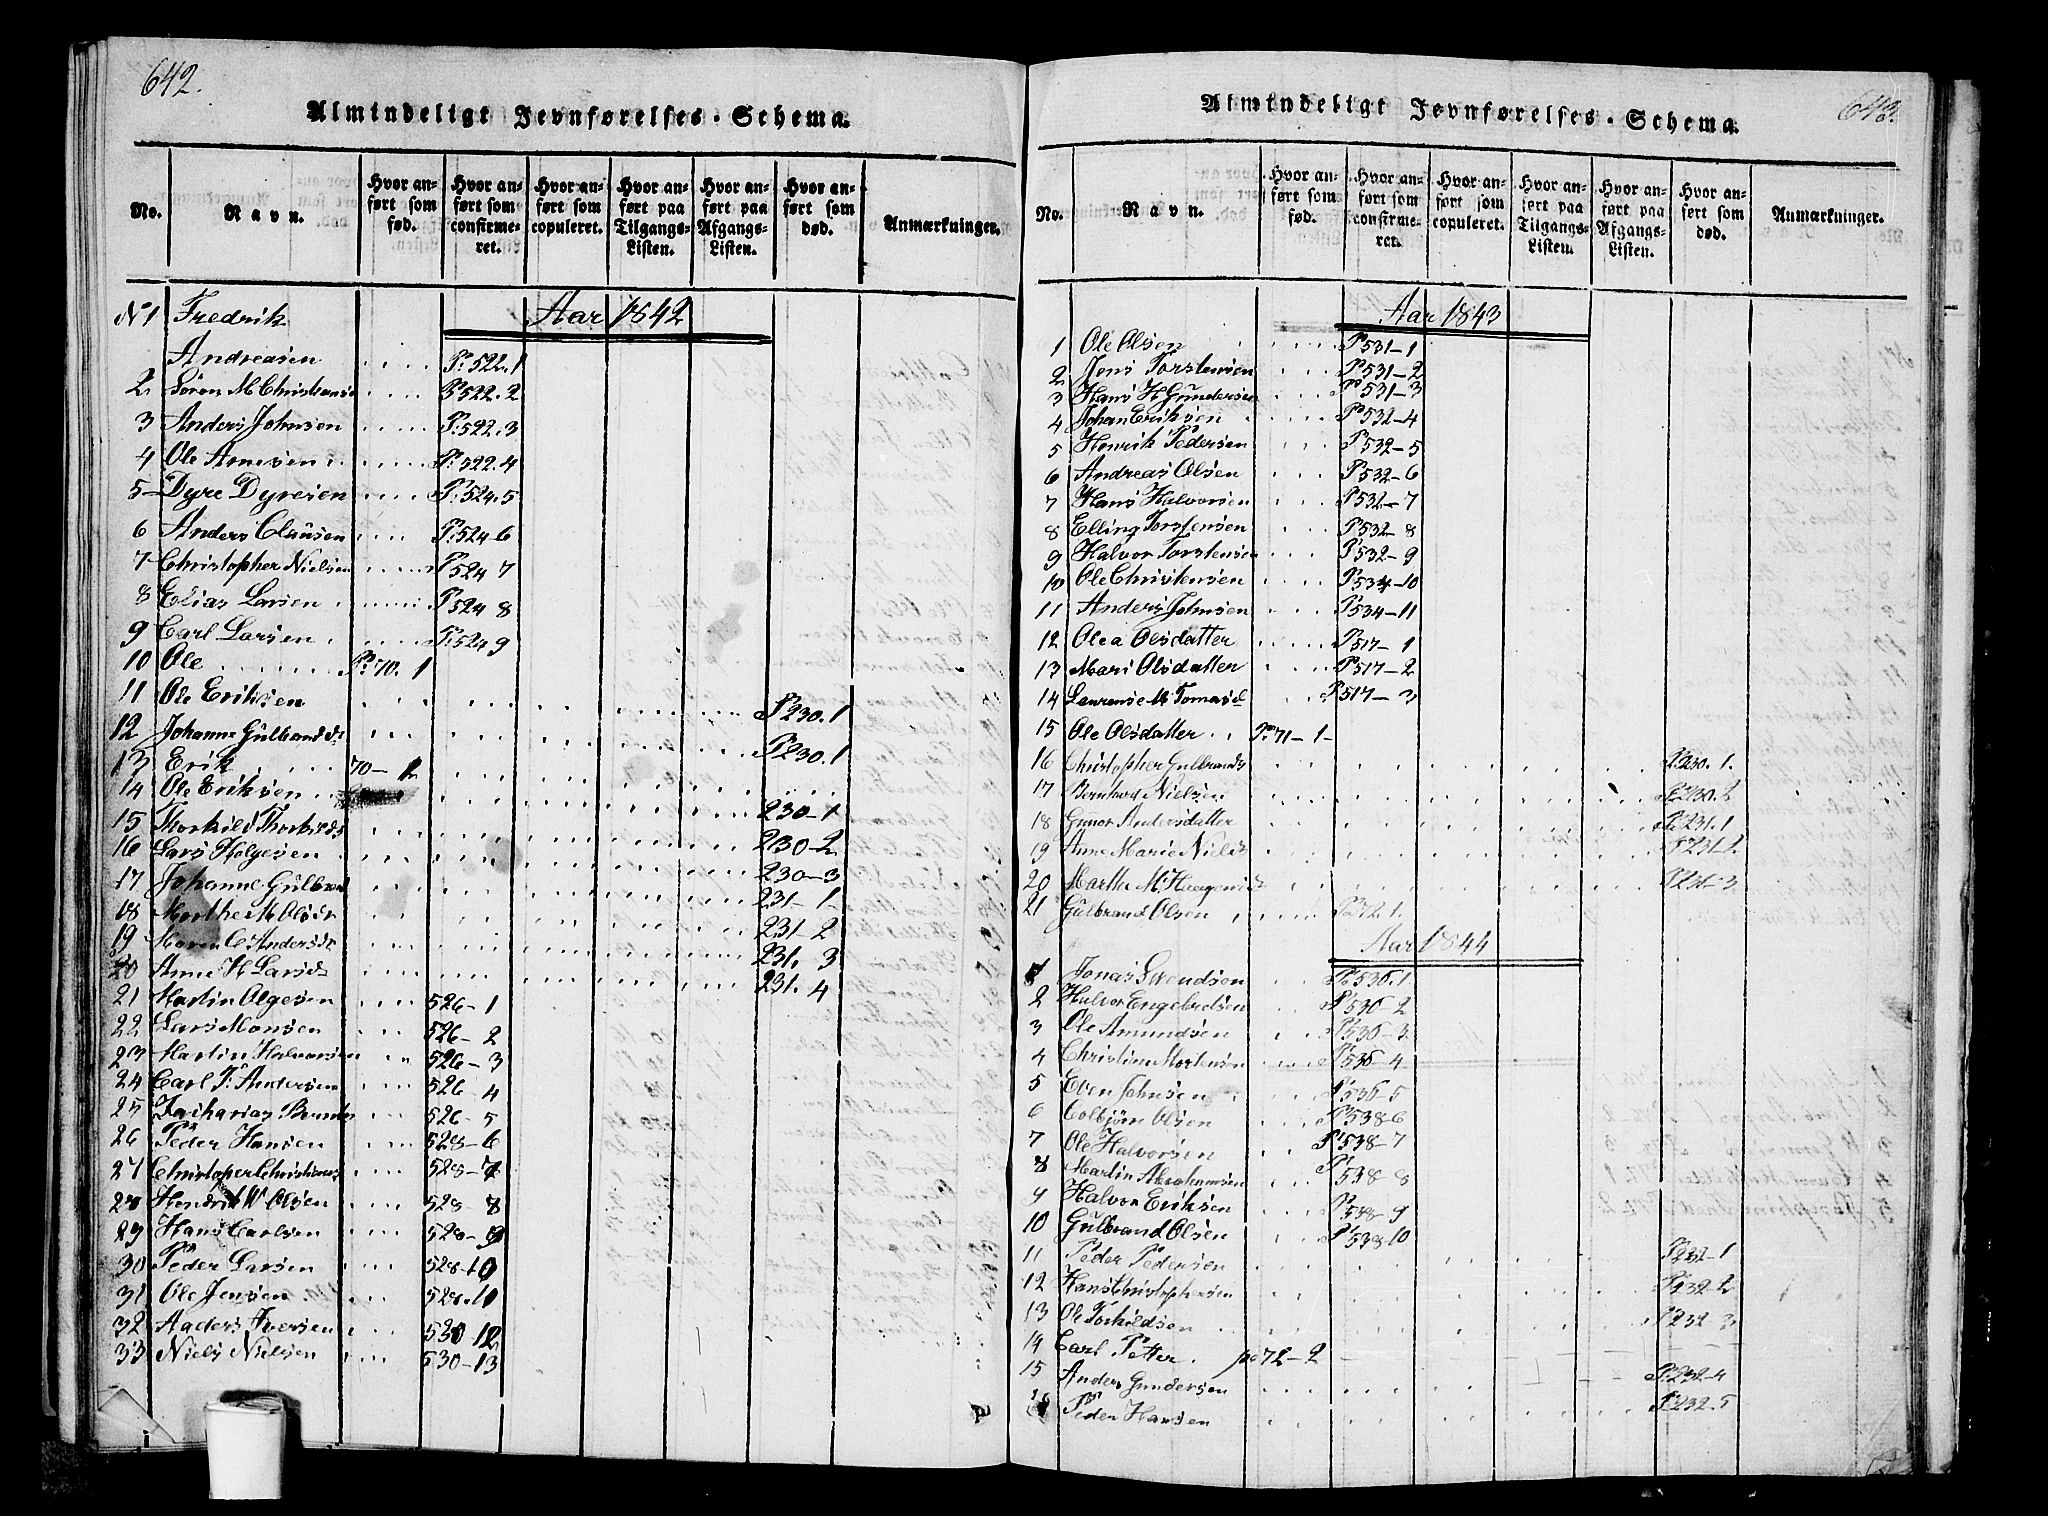 642.
Almindeligt Jevnførelses-Schema.
No.
Navn.
Hvor anført som fød.
Hvor anført som confirmeret.
Hvor anført som copuleret.
Hvor anført paa Tilgangs-Listen.
Hvor anført paa Afgangs-Listen.
Hvor anført som død.
Anmærkninger.
Aar 1842
N 1 Fredrik
Andreasen P: 522.1
2 Sören M Christians P 522.2
3 Anders Johnsen P: 522.3
4 Ole Arnesen P: 522.4
5 Dyre Dyresen P: 524.5
6 Anders Clausen P: 524 6
7 Christopher Nielsen P 524 7
8 Elias Larsen P 524 8
9 Carl Larsen P: 524 9
10 Ole P: 70. 1
11 Ole Eriksen P 230.1
12 Johanne Gulbrandsd P 230.1
13 Erik 70-2
14 Ole Eriksen 230-1
15 Thorkild Thorkilds 230-2
16 Lars Holgesen 230-3
17 Johanne Gulbrand 231-1
18 Marthe M Olsdr 231-2
19 Maren C Andersdr 231. 3
20 Anne K Larsdr 231. 4
21 Martin Olgesen 526-1
22 Lars Monsen 526-2
23 Martin Halvorsen 526-3
24 Carl P: Andersen 526-4
25 Zacharias 526-5
26 Peder Hansen 528-6
27 Christopher Christians 528-7
28 Hendrik W Olsen 528-8
29 Hans Carlsen 528-9
30 Peder Larsen 528-10
31 Ole Jensen 528.11
32 Anders Iversen 530-12
33 Niels Nielsen 530-13
643.
Almindeligt Jevnførelses-Schema.
No.
Navn.
Hvor anført som fød.
Hvor anført som confirmeret.
Hvor anført som copuleret.
Hvor anført paa Tilgangs-Listen.
Hvor anført paa Afgangs-Listen.
Hvor anført som død.
Anmærkninger.
Aar 1843
1 Ole Olsen P 531-1
2 Jens Torstensen P 531-2
3 Hans H Gundersen P 531-3
4 Johan Eriksen P 532-4
5 Henrik Pedersen P 532-5
6 Andreas Olsen P 532-6
7 Hans Halvorsen P 532-7
8 Elling Torstensen P 532-8
9 Halvor Torstensen P 532-9
10 Ole Christensen P 534-10
11 Anders Johnsen P 534-11
12 Olea Olsdatter P 517-1
13 Mari Olsdatter P 517-2
14 Laurense M Tomasd P 517-3
15 Ole Olsdatter P: 71-1-
16 Christopher Gulbrands P. 230.1.
17 Bernhard Nielsen P. 230.2
18 Gunor Andersdatter P. 231.1
19 Anne Marie Nielsd P 231-2
20 Marthe M. Haagensd P 231-3
21 Gulbrand Olsen P 72.1.
Aar 1844
1 Jonas Svendsen P 536.1
2 Halvor Engebretsen P 536-2
3 Ole Amundsen P 536-3
4 Christian Mortensen P 536-4
5 Even Johnsen P 536-5
6 Colbjörn Olsen P 538-6
7 Ole Halvorsen P 538-7
8 Martin Abrahamsen P 538 8
9 Halvor Eriksen P 538-9
10 Gulbrand Olsen P 538-10
11 Peder Pedersen P 232-1
12 Hans Christophersen P. 232-2
13 Ole Torkildsen P 232-3
14 Carl Petter. pa 72-2
15 Anders Gundersen P: 232-4
16 Peder Hansen P 232.5